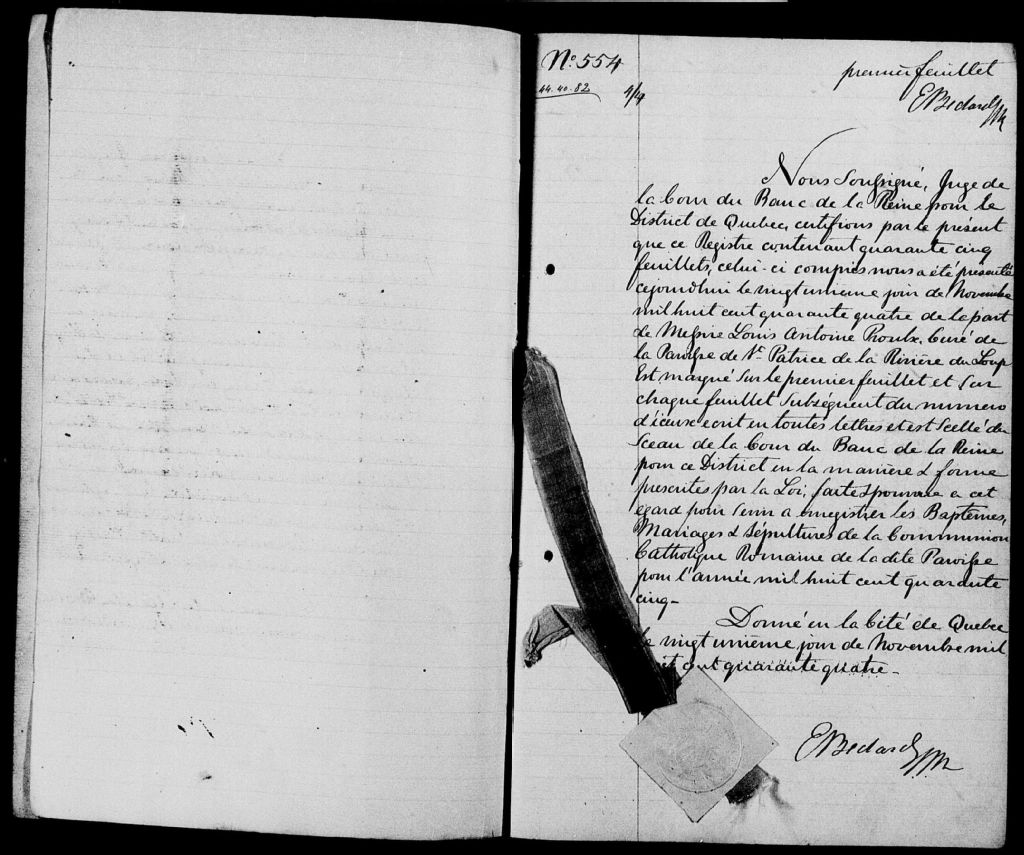 No. 554
44. 40. 82
4/4
premier feuillet
E Bedard JBR
Nous Soussigné, Juge de
la Cour du Banc de la Reine pour le
District de Quebec, certifions par le présent
que ce Registre contenant quarante cinq
feuillets, celui-ci compris nous a été présenté
cejourdhui le vingt unieme jour de Novembre
mil huit cent quarante quatre de la part
de Messire Louis Antoine Proulx, Curé de
la Paroisse de St. Patrice de la Rivière du Loup
Est marqué Sur le premier feuillet et Sur
chaque feuillet Subséquent du numero
d'iceux ecrit en toutes lettres et est Scellé du
Sceau de la Cour du Banc de la Reine
pour ce District en la manière & forme
prescrites par la Loi, faite & pourvue a cet
egard pour Servir a enregistrer les Baptêmes,
Mariages & Sépultures de la Communion
Catholique Romaine de la dite Paroisse
pour l'année mil huit cent quarante
cinq -
Donné en la Cité de Quebec
le vingt unième jour de Novembre mil
huit cent quarante quatre -
E Bedard JBR